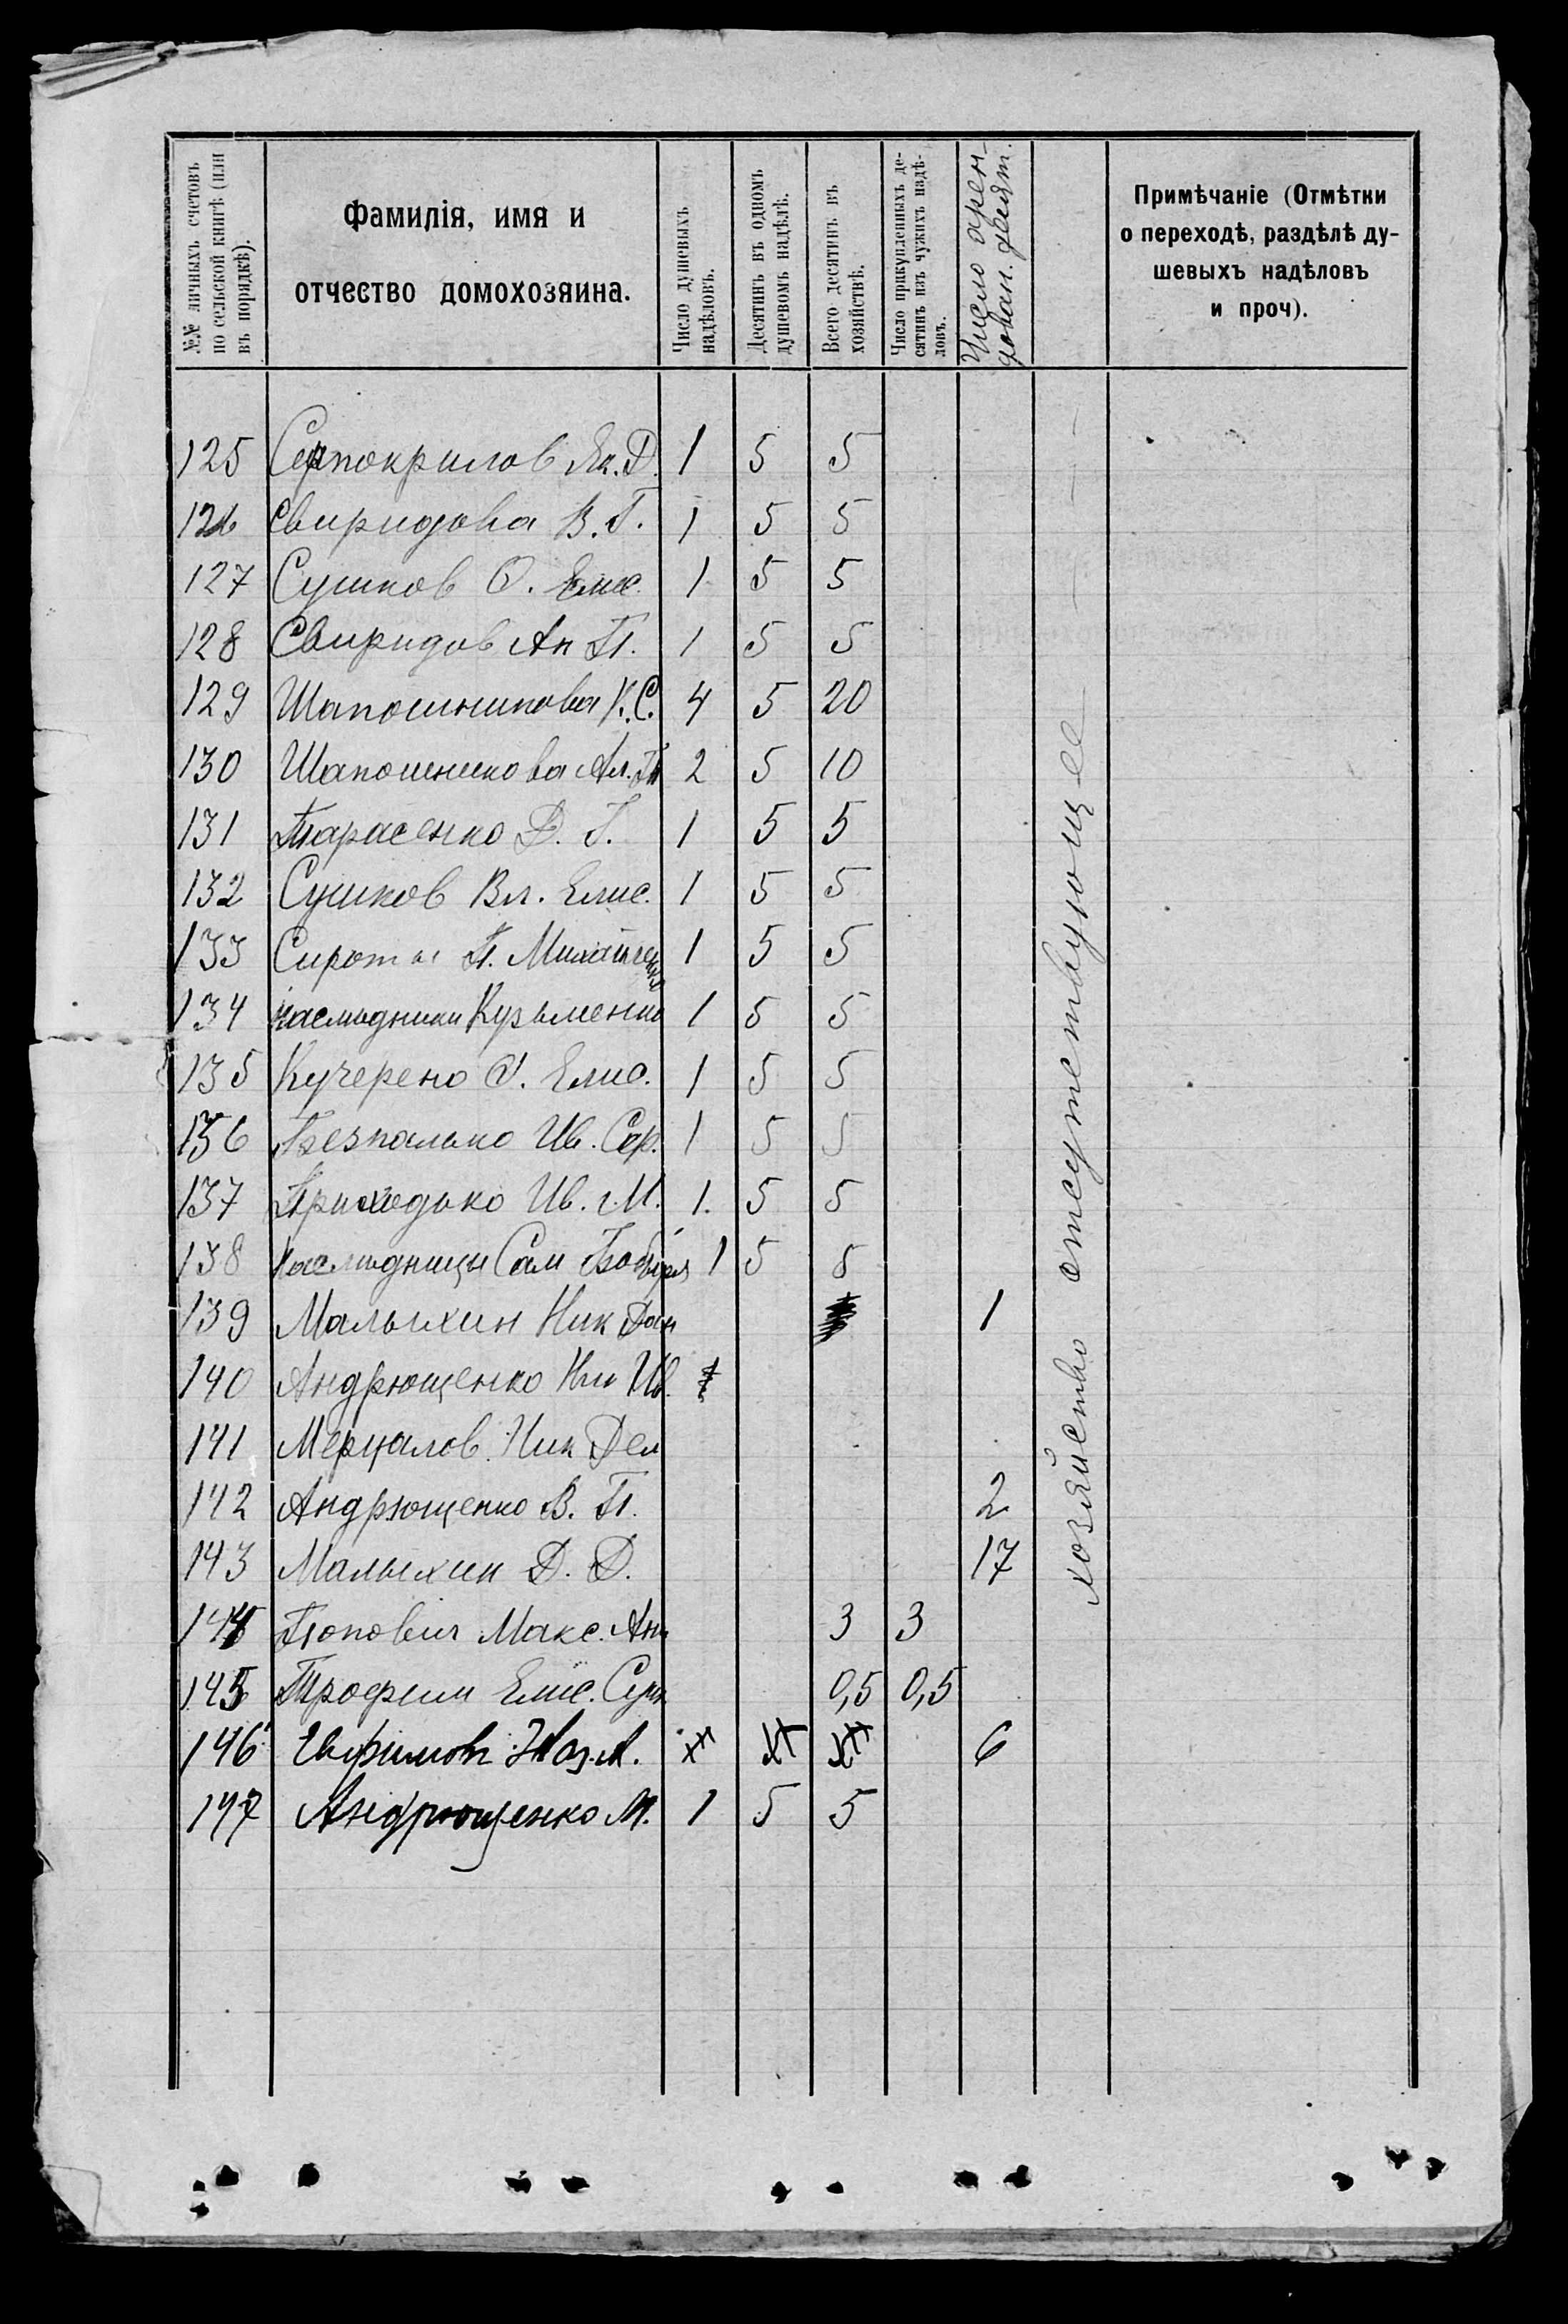 №№ личныхъ счетовъ
по сельской книгѣ (или
въ порядкѣ).
Фамилія, имя и
отчество домохозяина.
Число душевыхъ
надѣловъ.
Десятинъ въ одномъ
душевомъ надѣлѣ.
Всего десятинъ въ
хозяйствѣ.
Число прикупленныхъ де-
сятинъ изъ чужихъ надѣ-
ловъ.
Число арен-
дован. десят.
Примѣчаніе (Отмѣтки
о переходѣ, раздѣлѣ ду-
шевыхъ надѣловъ
и проч).
125 Серпокрилов Як. Д. 1 5 5
126 Свиридова В. Г. 1 5 5
127 Сушков О. Елис. 1 5 5
128 Свиридов Ан П. 1 5 5
129 Шапошникова К. С. 4 5 20
130 Шапошникова Ал. 2 5 10
131 Тарасенко Д. Г. 1 5 5
132 Сушков Вл. Елис. 1 5 5
133 Сирота П. 1 5 5
134 наследники Кузьменко 1 5 5
135 Кучерено Елис. 1 5 5
136 Безпалько Ив. 1 5 5
137 Приходько Ив. М. 1. 5 5
138 Наследницы Сам 1 5 5
139 Малыхин Ник Дан 1
140 Андрющенко Ив.
141 Мерцалов Ник
142 Андрющенко В. П. 2
143 Малыхин Д. Д. 17
144 Попович Макс. 3 3
145 Трофим Елис. 0,5 0,5
146 6
147 Андрющенко М. 1 5 5
хозяйство отсутствующее